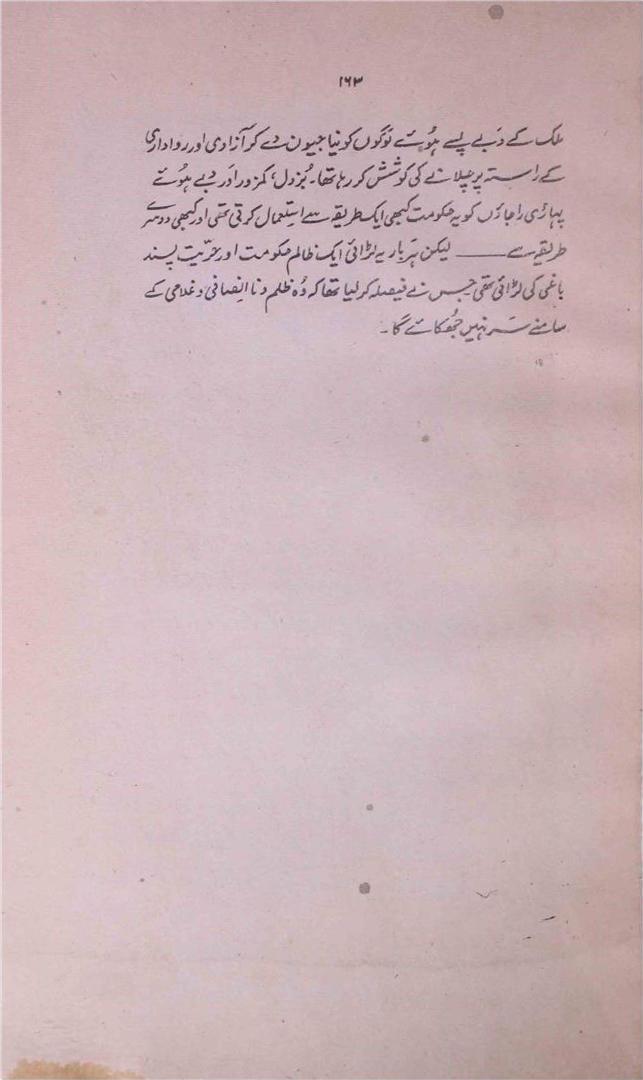 ۱۶۳
ملک کے دَبے پسے ہُوئے لوگوں کو نیا جیون دے کر آزادی اور رواداری
کے راستہ پر چلانے کی کوشش کر رہا تھا۔ بُزدل، کمزور اور دبے ہُوئے
پہاڑی راجاؤں کو یہ حکومت کبھی ایک طریقہ سے استعمال کرتی تھی اور کبھی دوسرے
طریقہ سے ——— لیکن ہر بار یہ لڑائی ایک ظالم حکومت اور حُرّیت پسند
باغی کی لڑائی تھی جس نے فیصلہ کر لیا تھا کہ وُہ ظلم و نا انصافی و غلامی کے
سامنے سَر نہیں جُھکائے گا۔